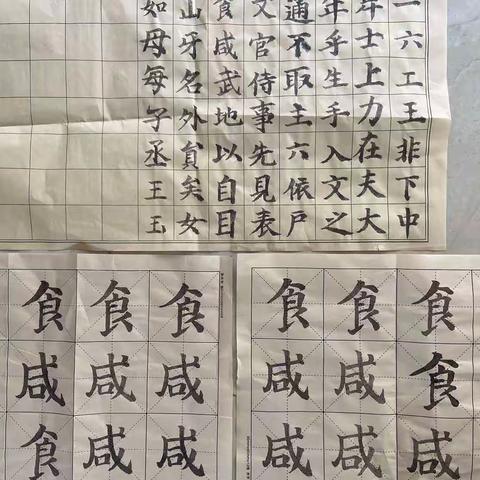 一六工王非下中
士上力在夫大
年乎生手入文之
通不取主六依戸
又官侍事先見表
食咸武地以自目
山牙名外負矣女
如母每子丞王玉
食食咸
食咸咸
食咸咸
食咸咸
食咸咸
食咸食